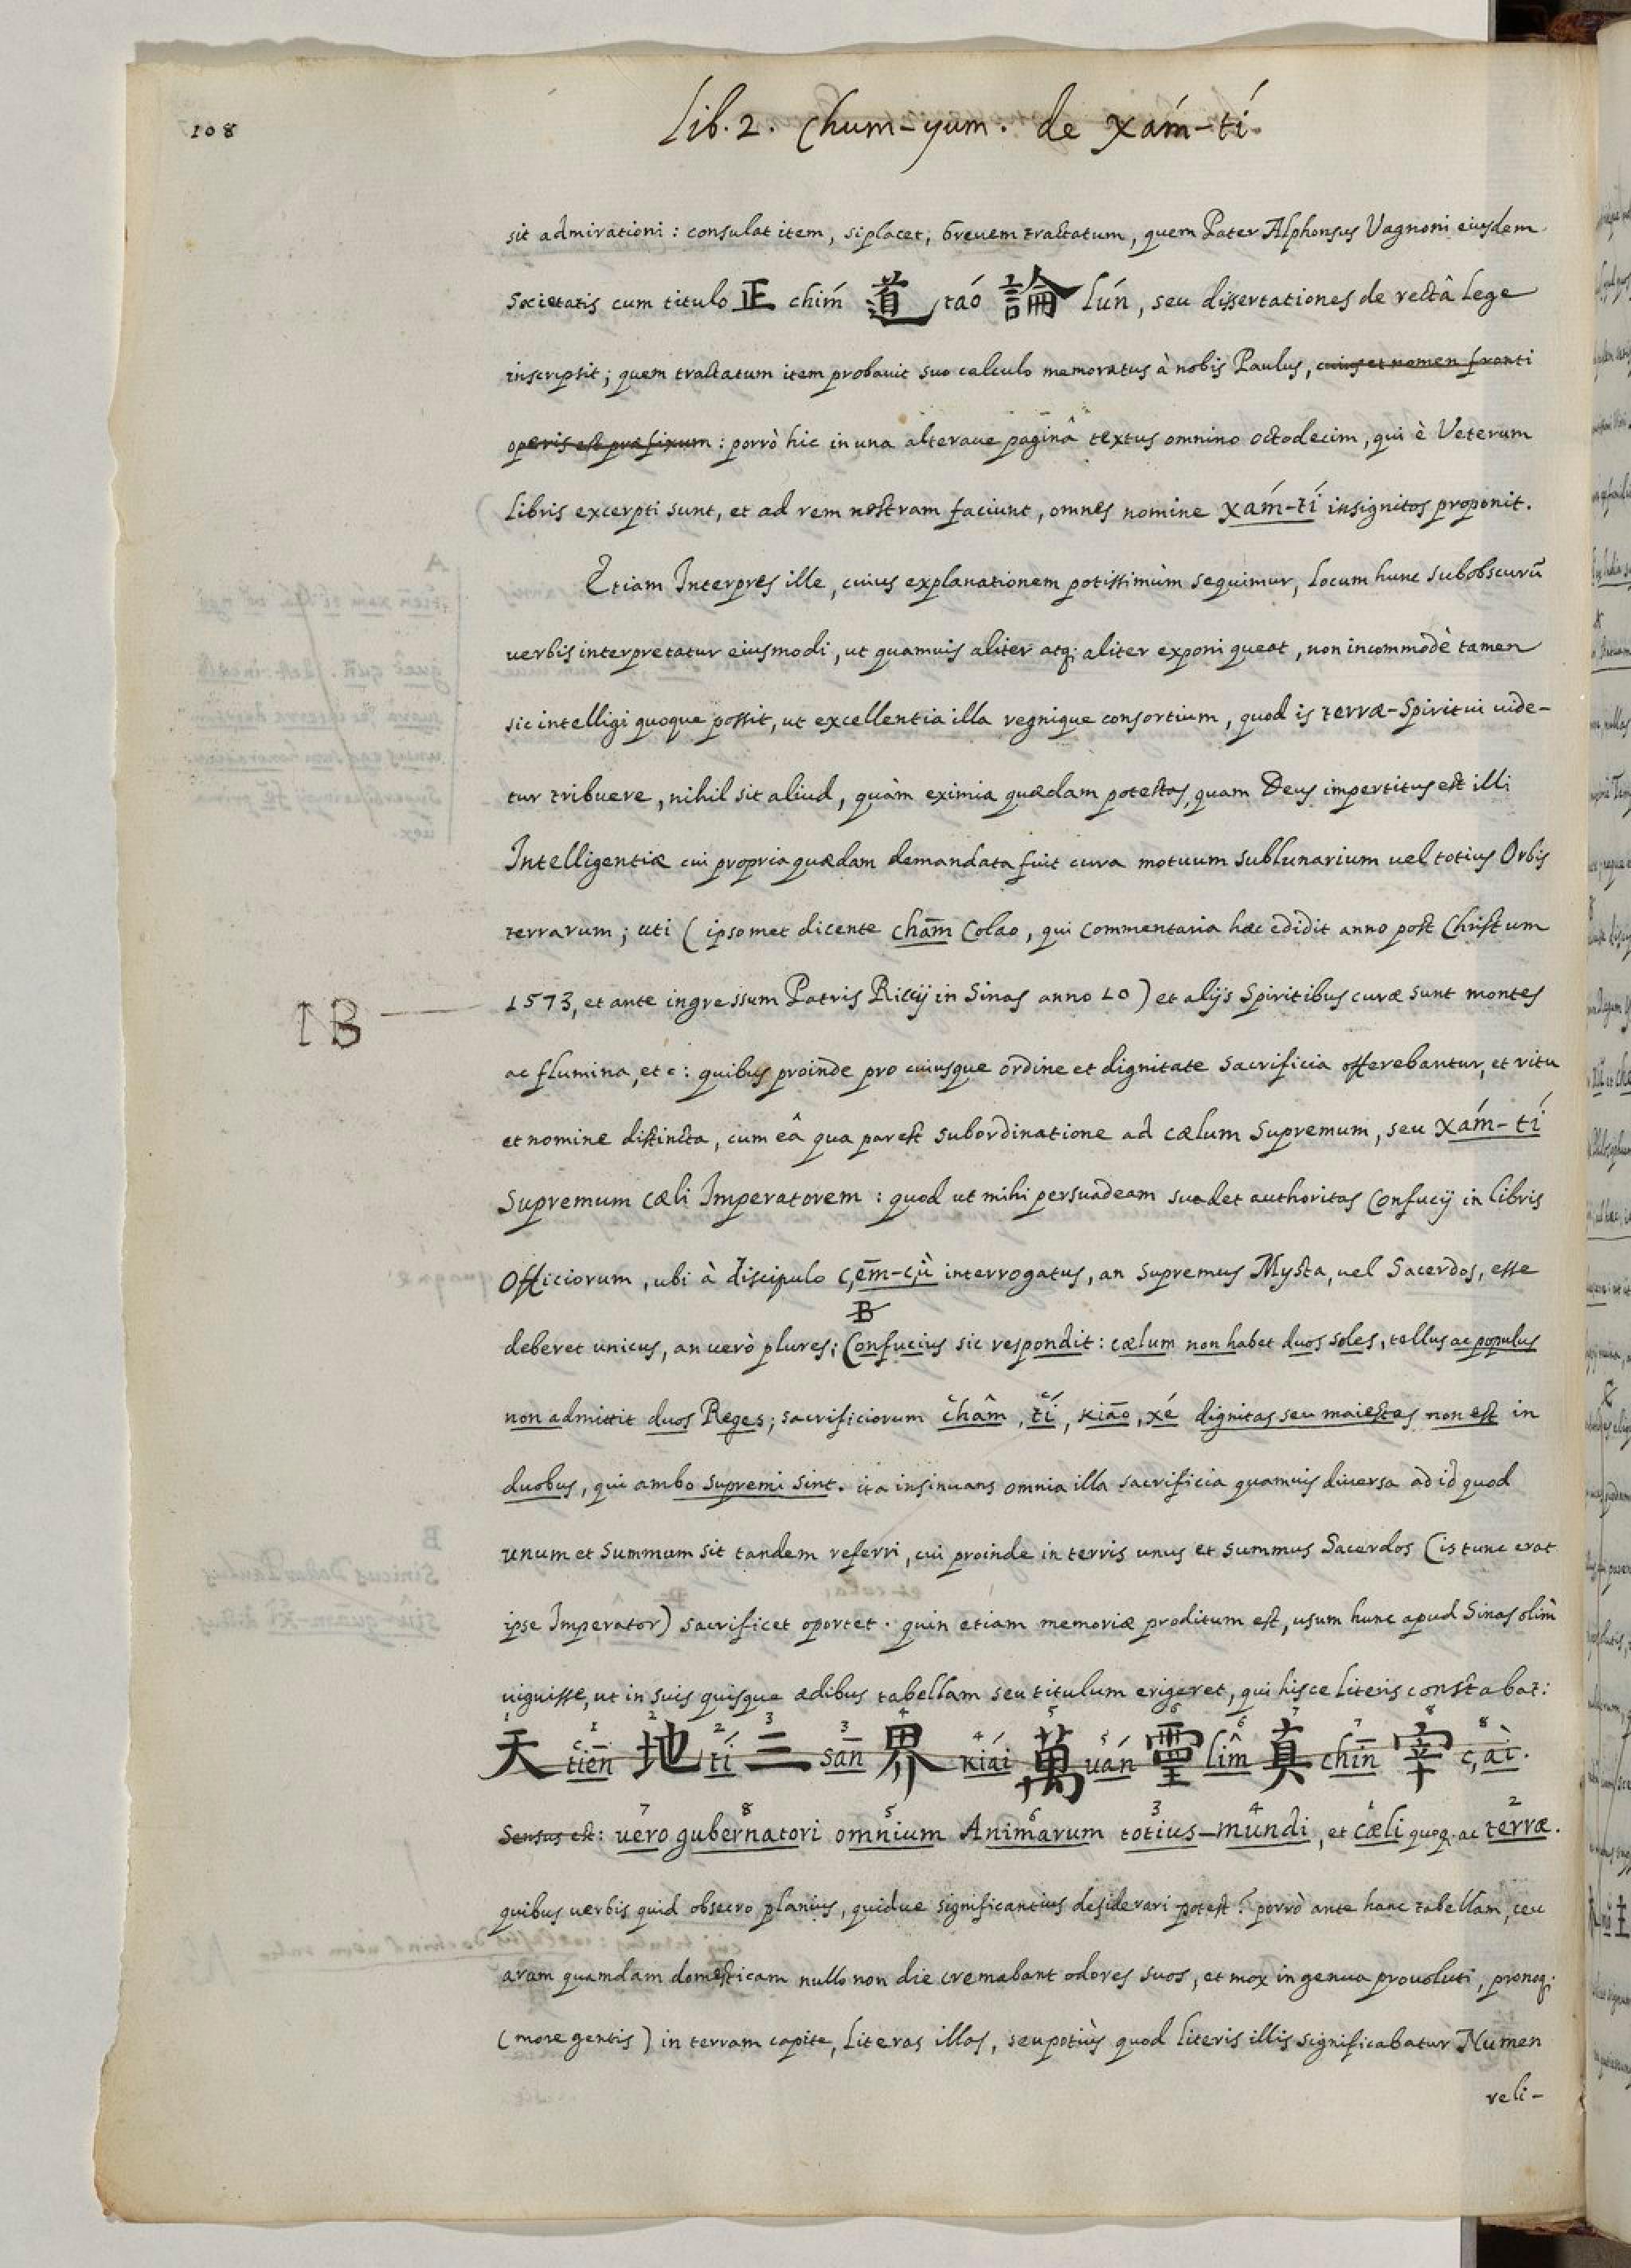 108
Lib. 2. Chum-yum. de xám-tí.
sit admirationi: consulat item, si placet, breuem tractatum, quem Pater Alphonsus Vagnoni eiusdem
Societatis cum titulo 正 chím 道 táo 論 lún, seu dissertationes de rectâ lege
inscripsit; quem tractatum item probauit suo calculo memoratus à nobis Paulus, cuius et nomen fronti
operis est praefixum: porrò hic in una alteraue paginâ textus omnino octodecim, qui è Veterum
libris excerpti sunt, et ad rem nostram faciunt, omnes nomine xám-tí insignitos proponit.
Etiam Interpres ille, cuius explanationem potissimùm sequimur, locum hunc subobscurū
uerbis interpretatur eiusmodi, ut quamuis aliter atq; aliter exponi queat, non incommodè tamen
sic intelligi quoque possit, ut excellentia illa regnique consortium, quod is terrae-Spiritui uide-
tur tribuere, nihil sit aliud, quàm eximia quaedam potestas, quam Deus impertitus est illi
Intelligentiae cui propria quaedam demandata fuit cura motuum sublunarium uel totius Orbis
terrarum; uti (ipsomet dicente chām Colao, qui commentaria haec edidit anno post Christum
1573, et ante ingressum Patris Riccij in Sinas anno 10) et alijs Spiritibus curae sunt montes
B
ac flumina, etc: quibus proinde pro cuiusque ordine et dignitate sacrificia offerebantur, et ritu
et nomine distincta, cum eâ qua par est subordinatione ad caelum supremum, seu xám-tí
Supremum caeli Imperatorem: quod ut mihi persuadeam suadet authoritas Confucij in libris
Officiorum, ubi à discipulo c,ēm-c,ù interrogatus, an supremus Mysta, uel Sacerdos, esse
B
deberet unicus, an uerò plures; Confucius sic respondit: caelum non habet duos soles, tellus ac populus
non admittit duos Reges; sacrificiorum châm, tí, kiāo, xé dignitas seu maiestas non est in
duobus, qui ambo supremi sint. ita insinuans omnia illa sacrificia quamuis diuersa ad id quod
unum et summum sit tandem referri, cui proinde in terris unus et summus Sacerdos (is tunc erat
ipse Imperator) sacrificet oportet. quin etiam memoriae proditum est, usum hunc apud Sinas olim
uiguisse, ut in suis quisque aedibus tabellam seu titulum erigeret, qui hisce literis constabat:
1 1 2 2 3 3 4 4 5 5 6 6 7 7 8 8
天 tiēn 地 tí 三 sān 界 kiái 萬 uán 靈 lîm 真 chīn 宰 c,ài.
7 8 5 6 3 4 1 2
Sensus est: uero gubernatori omnium Animarum totius-mundi, et caeli quoq. ac terrae.
quibus uerbis quid obsecro planius, quidue significantius desiderari potest? porrò ante hanc tabellam, ceu
aram quamdam domesticam nullo non die cremabant odores suos, et mox in genua prouoluti, pronoq;
(more gentis) in terram capite, literas illas, seu potiùs quod literis illis significabatur Numen
reli-